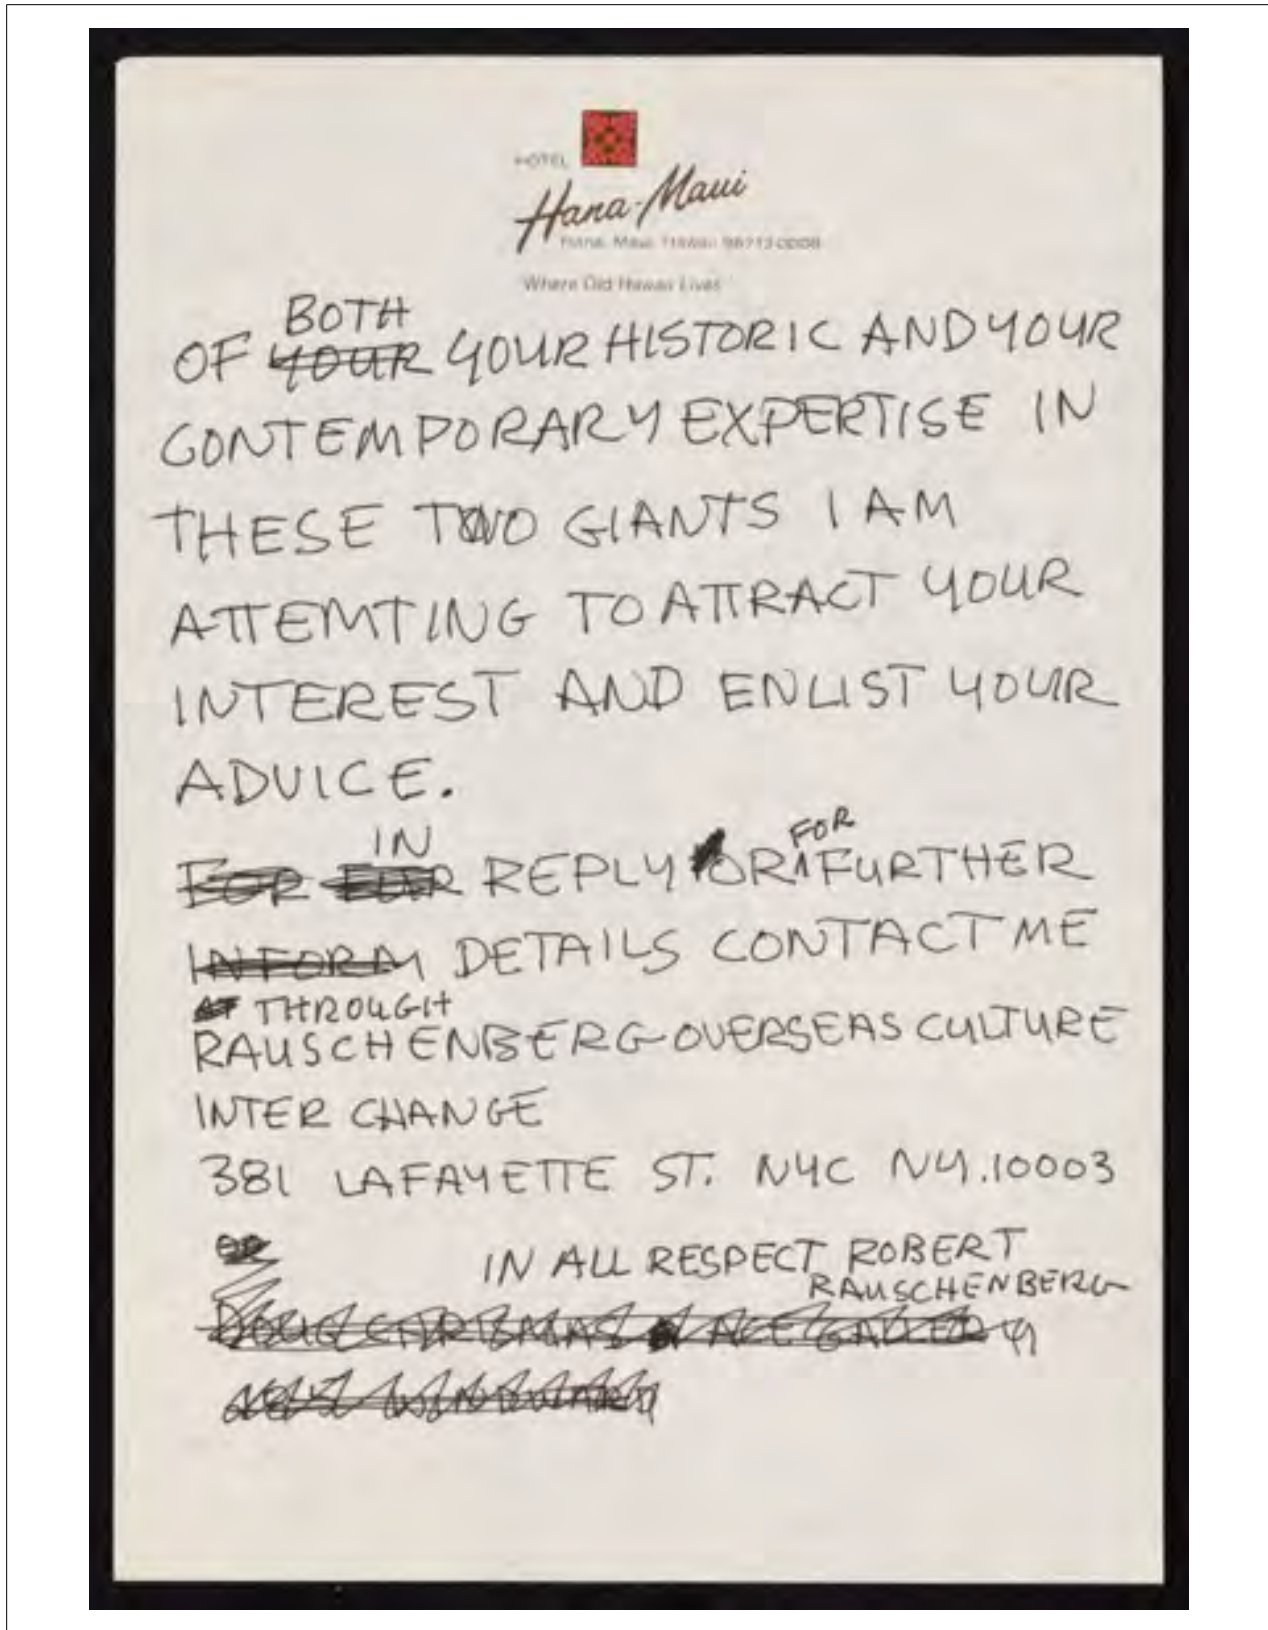 HOTEL
Hana-Maui
Hana, Maui, Hawaii 96713-0008
"Where Old Hawaii Lives"
BOTH
OF YOUR YOUR HISTORIC AND YOUR
CONTEMPORARY EXPERTISE IN
THESE TWO GIANTS I AM
ATTEMTING TO ATTRACT YOUR
INTEREST AND ENLIST YOUR
ADVICE.
IN FOR
FOR FUR REPLY OR FURTHER
INFORM DETAILS CONTACT ME
AT THROUGH
RAUSCHENBERG OVERSEAS CULTURE
INTER CHANGE
381 LAFAYETTE ST. NYC NY.10003
OR
IN ALL RESPECT ROBERT
RAUSCHENBERG
DOUG CHRISMAS ACE GALLERY